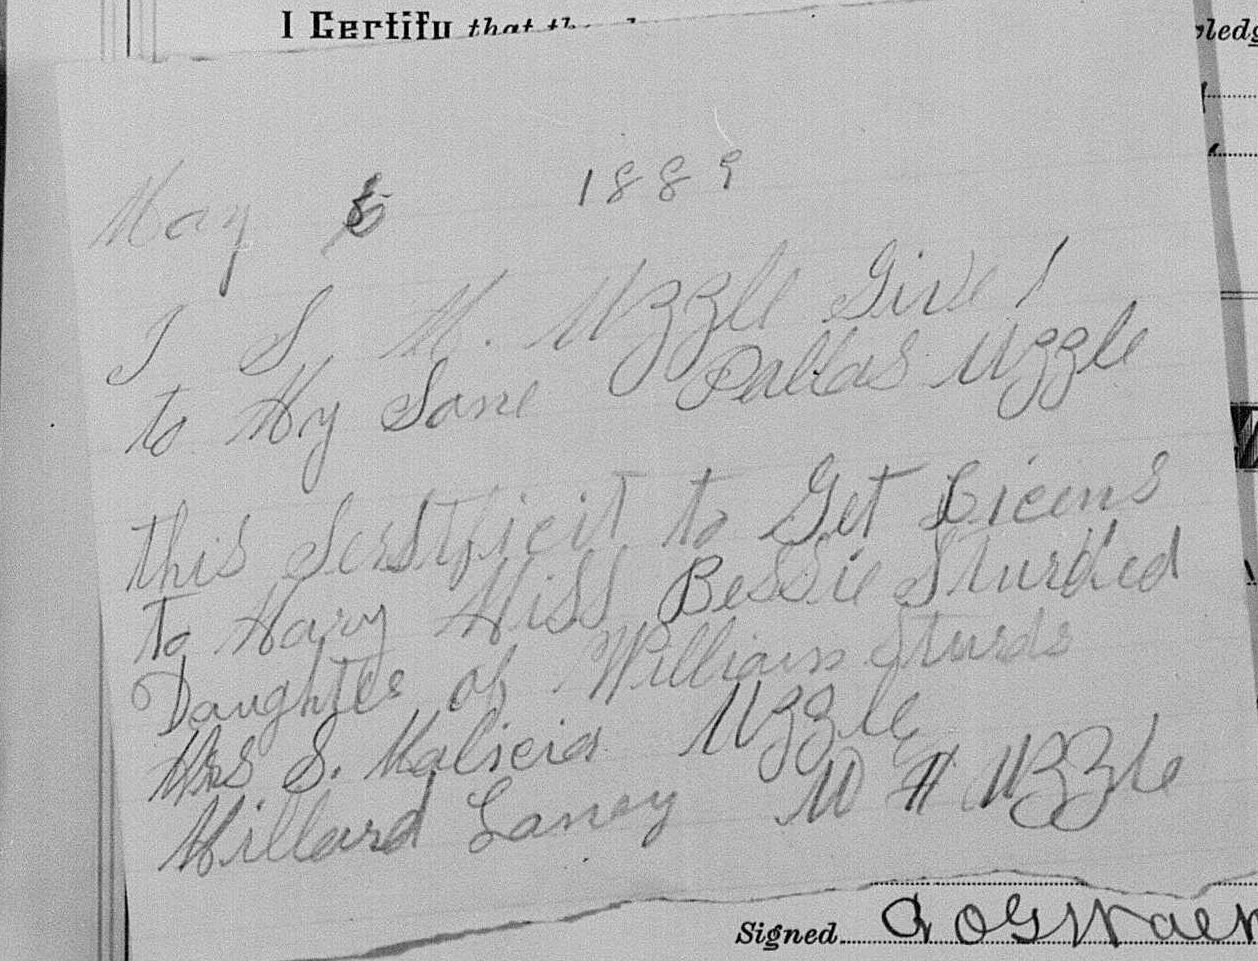 I Certify that th
ledg
May 8 1889
I S M. Uzzle Give
to My Sone Dallas Uzzle
this Serstficit to Get Licens
To Mary Miss Bessie Sturded
Daughter of William Sturds
Mrs S. Malicia Uzzle
Millard Laney W H Uzzle
Signed